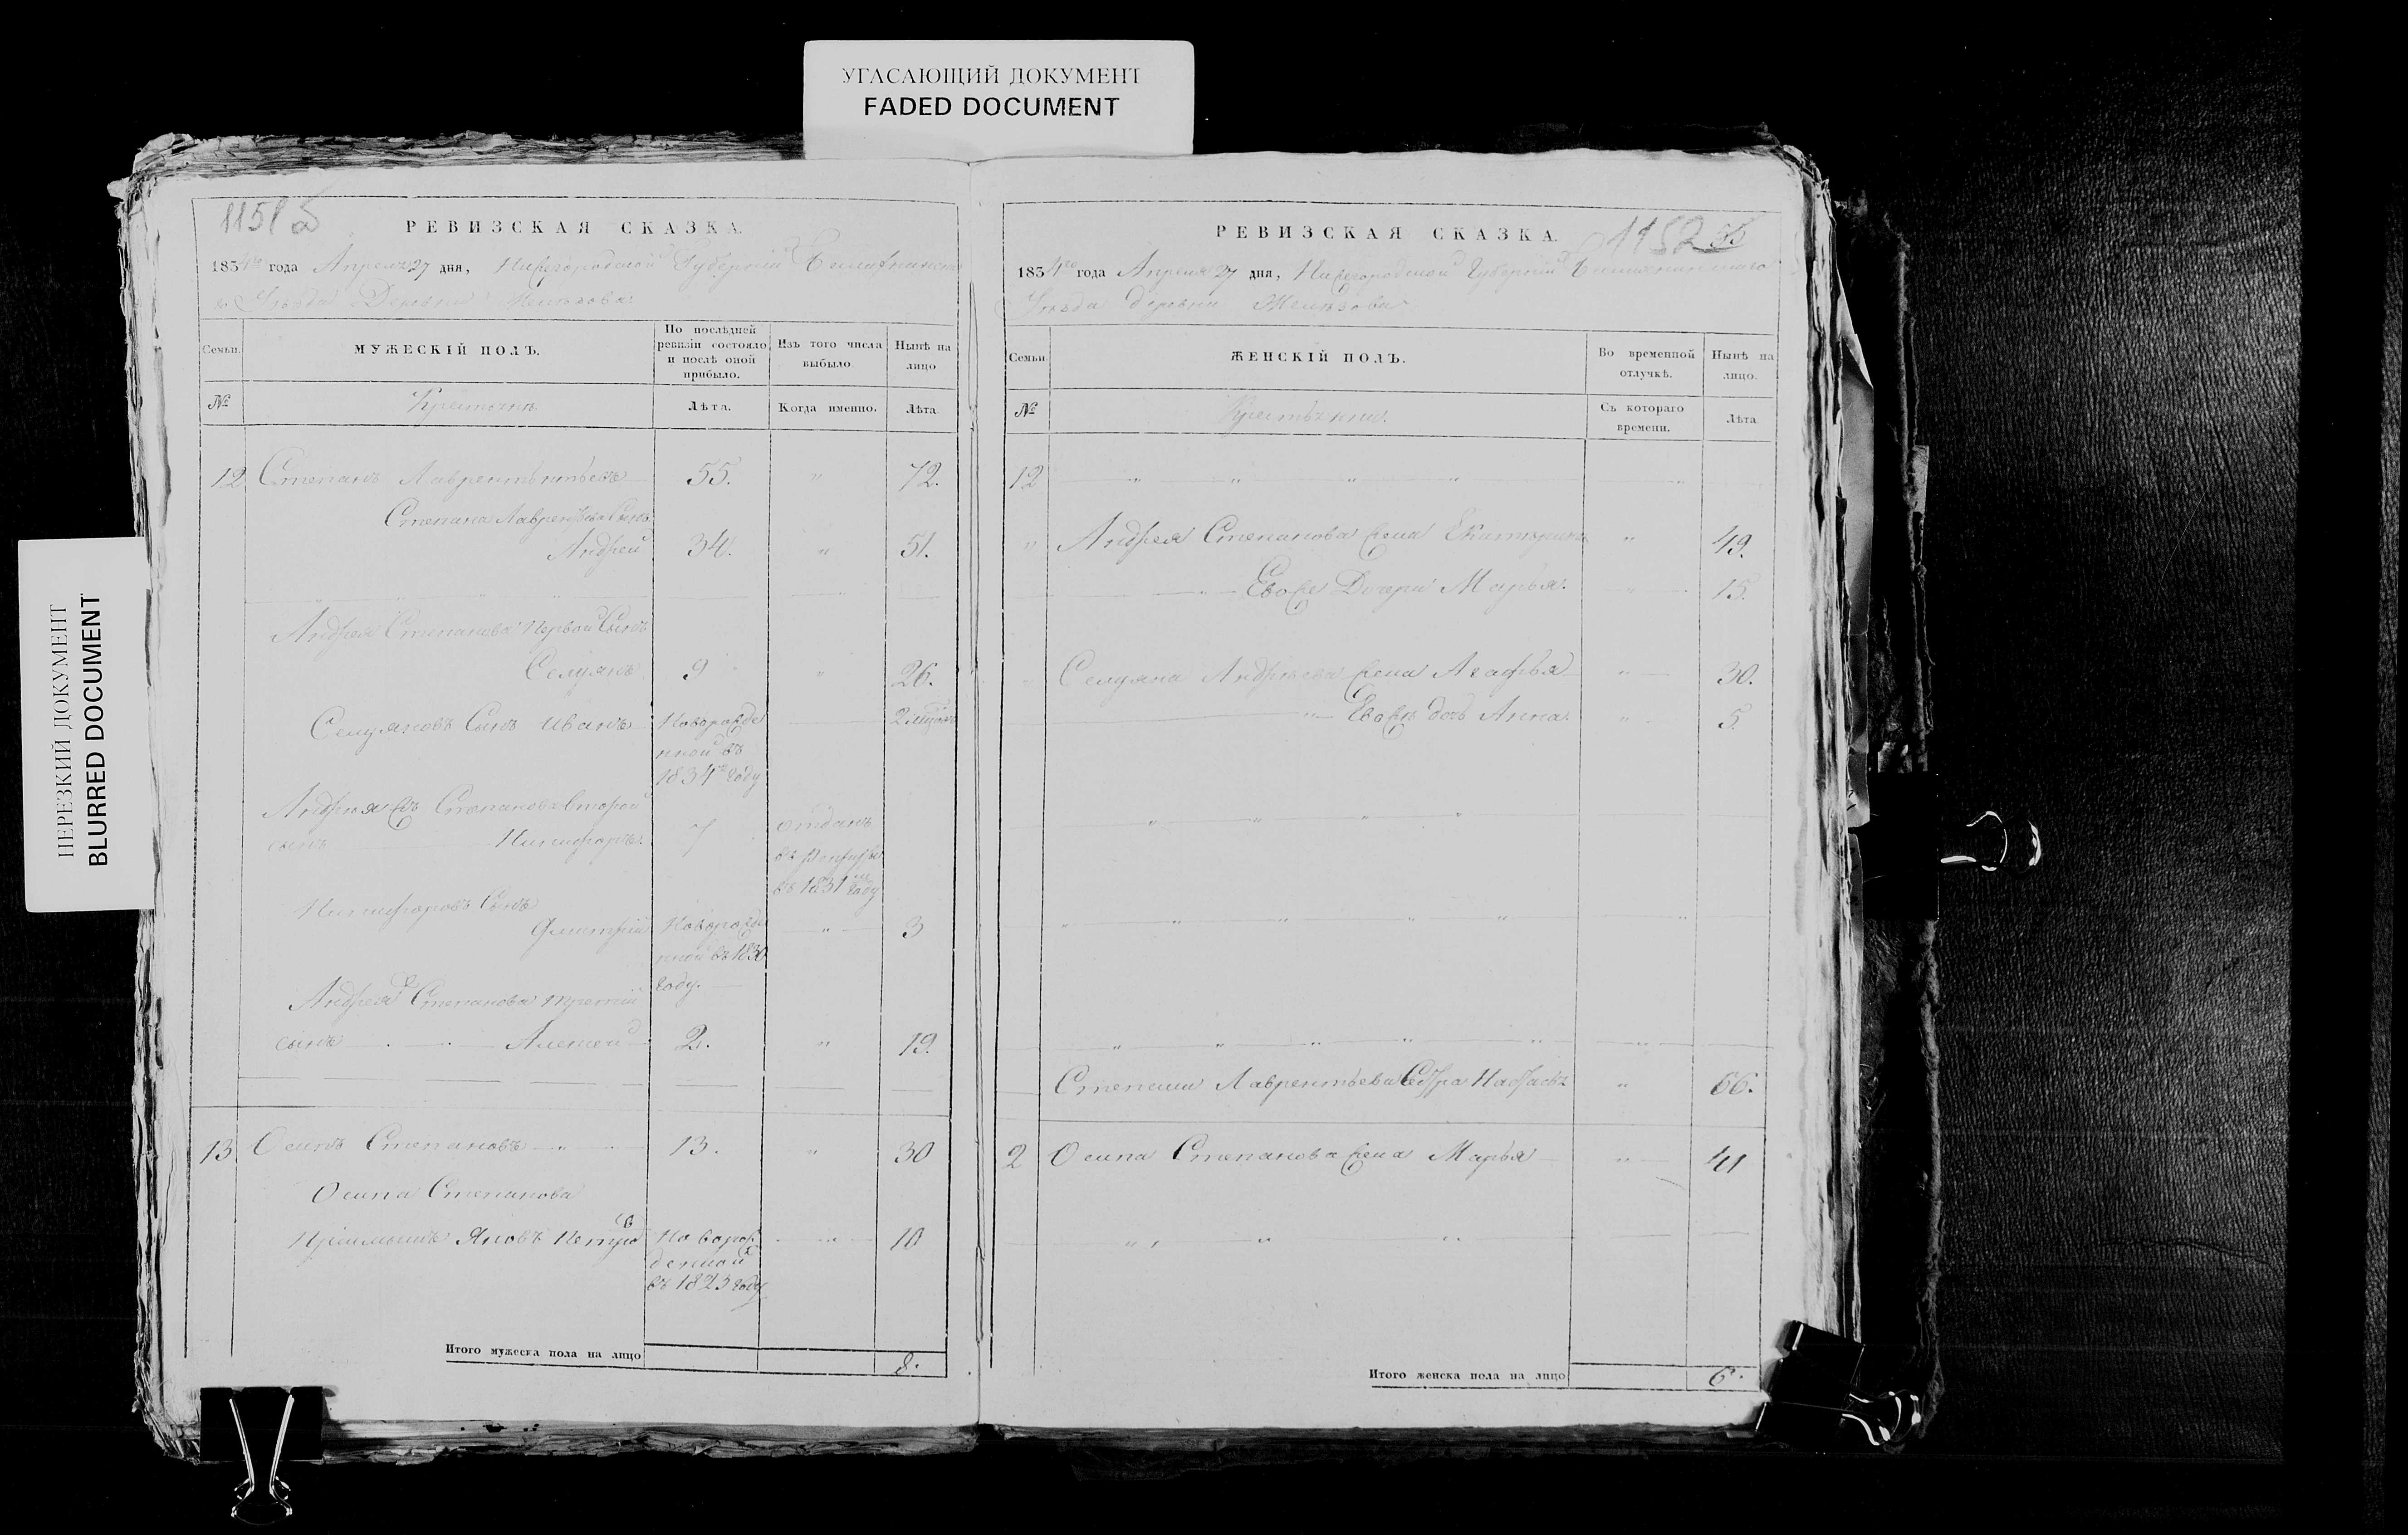 УГАСАЮЩИЙ ДОКУМЕНТ
FADED DOCUMENT
НЕРЕЗКИЙ ДОКУМЕНТ
BLURRED DOCUMENT
1151 б
РЕВИЗСКАЯ СКАЗКА
1834го года Апреля 27 дня, Нижегородской Губернии
Уѣзда Деревни
Семьи.
МУЖЕСКІЙ ПОЛЪ.
По послѣдней ревизіи состояло и послѣ оной прибыло.
Изъ того числа выбыло
Нынѣ на лицо
№
Крестьяне
Лѣта.
Когда именно.
Лѣта
12 Степанъ 55. " 72.
Степана Лаврентьева Сынъ
Андрей 34. " 51.
Андрея Степанова Первой Сынъ
Селуянъ 9 " 26.
Селуяновъ Сынъ Иванъ Новорожде 2
нной въ
1834м году
Степанова второй
сынъ Никифоръ 7 отданъ
въ рекруты
въ 1831м году
Никифоровъ Сынъ
Дмитрий Новорожде " 3
нной въ 1830
году.
Андрея Степанова третий
сынъ Алексей 2. " 19.
13 Осипъ Степановъ 13. " 30
Осипа Степанова
Приемышъ Яковъ Петров Новорож " 10
денной
въ 1823 году
Итого мужеска пола на лицо 8.
1152
РЕВИЗСКАЯ СКАЗКА.
1834го года Апреля 27 дня, Нижегородской Губернии
Уѣзда деревни
Семьи
ЖЕНСКІЙ ПОЛЪ.
Во временной отлучкѣ.
Нынѣ на лицо.
№
Крестьяне.
Съ котораго времени.
Лѣта
12 " " " "
" Андрея Степанова жена Екатерина " 49.
Евоже Дочери Марья. " 15.
" Селуяна Андреева жена Агафья " 30.
" Евожъ дочь Анна. " 5.
" " " "
" " " " "
" " " " "
Степана Лаврентьева Сестра " 66.
2 Осипа Степанова жена Марья " 41
" " "
Итого женска пола на лицо 6.